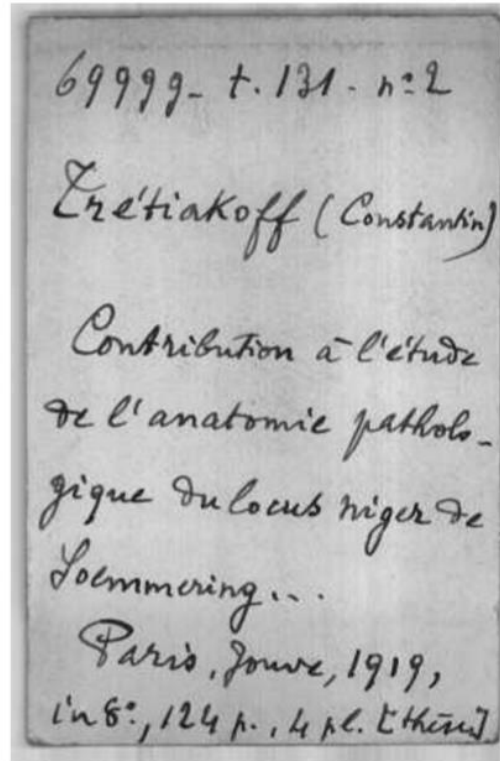 69999- t. 131. nº 2
Trétiakoff (Constantin)
Contribution à l'étude
de l'anatomie patholo-
gique du locus niger de
Soemmering...
Paris, Jouve, 1919,
in 8º, 124 p., 4 pl. [thèse]